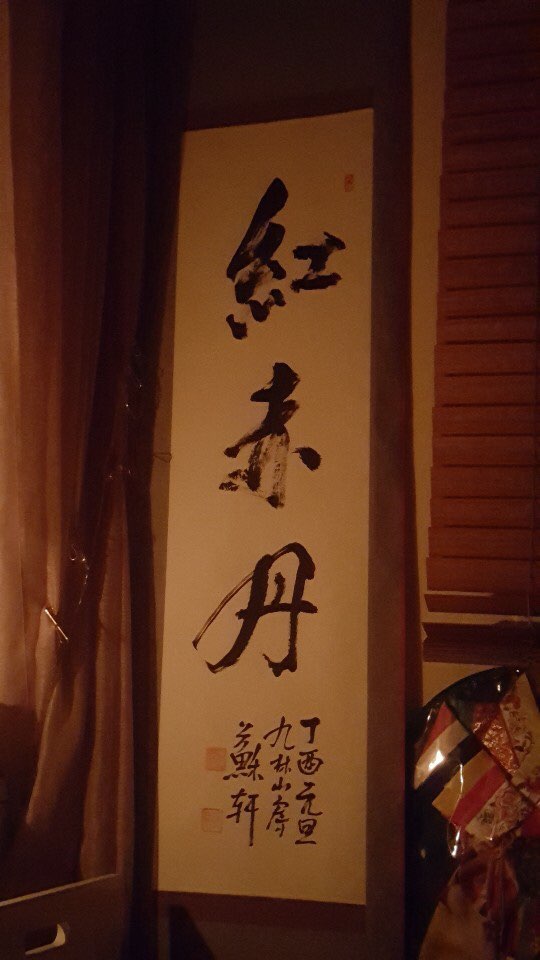 紅赤丹
丁酉元旦
九林山房
蘇軒